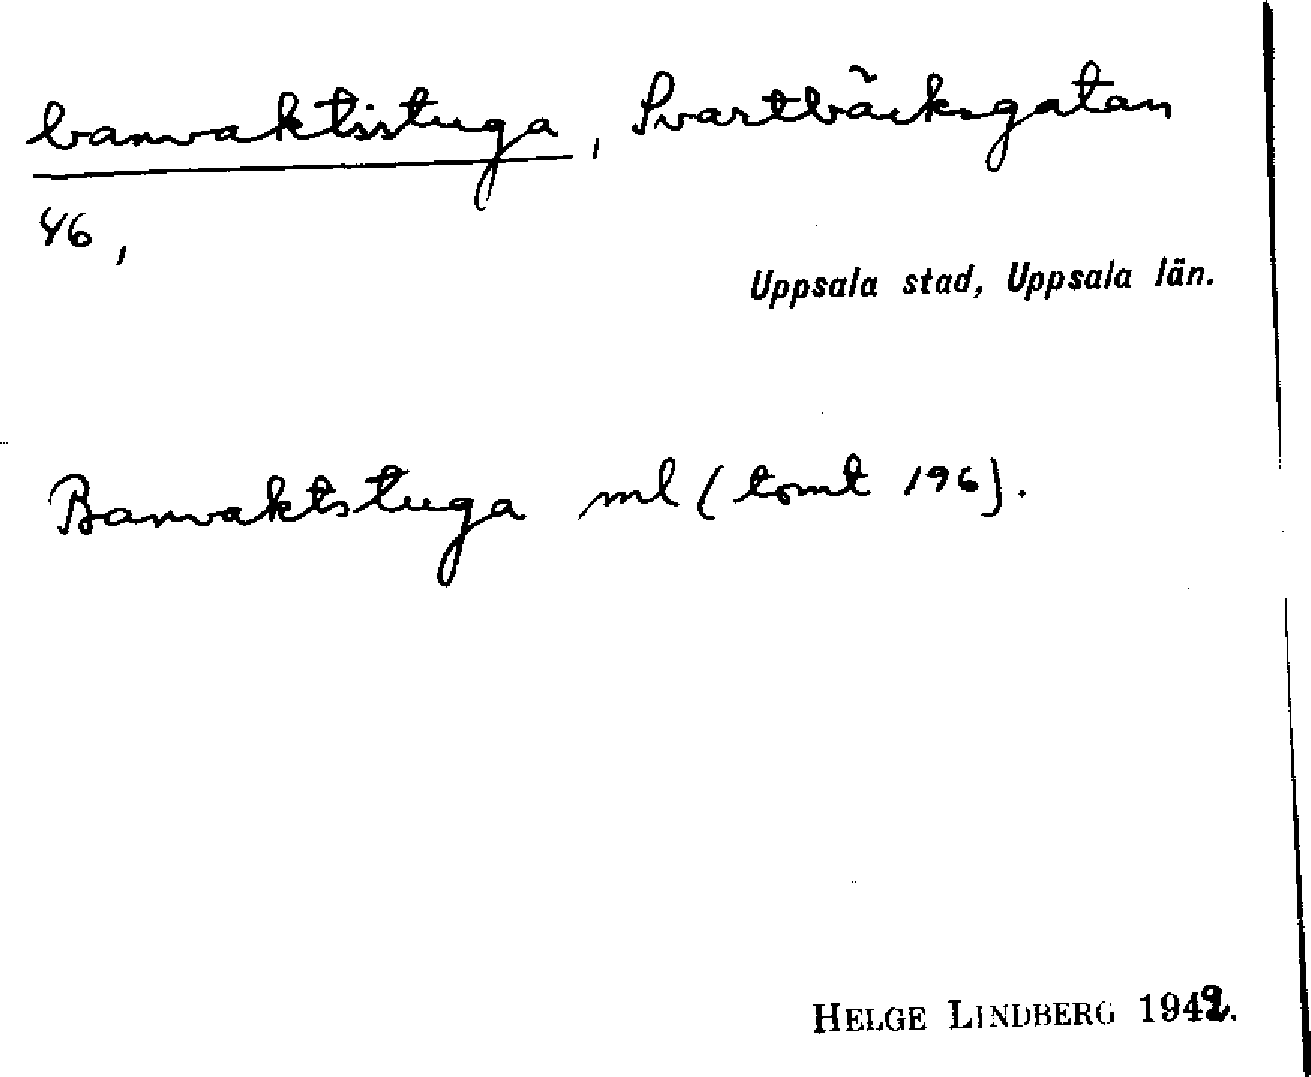 banvaktsstuga, Svartbäcksgatan
46,
Uppsala stad, Uppsala län.
Banvaktstuga ml (tomt 196).
HELGE LINDBERG 1942.